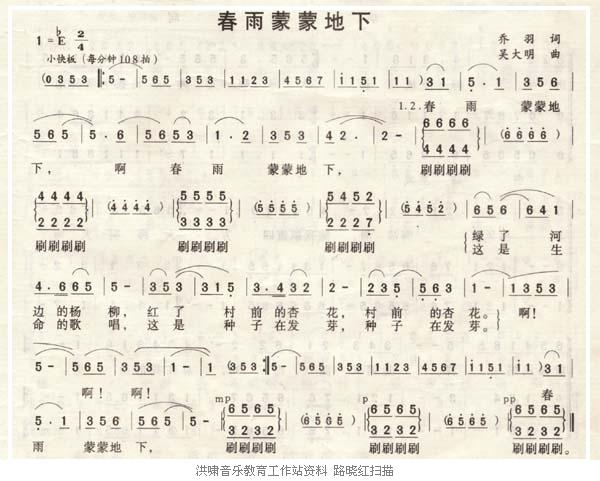 春雨蒙蒙地下
1=♭E 2/4
乔羽 词
吴大明 曲
小快板（每分钟108拍）
(0353 ‖: 5- | 565 353 | 1123 4567 | i151 11) | 31 | 5·1 | 353 |
1.2.春 雨 蒙蒙地
565 | 5·6 | 5653 | 1·2 | 353 | 42· | 2- | 6666 | (6666) |
4444
下， 啊 春 雨 蒙蒙地 下， 刷刷刷刷
4444 | (4444) | 5555 | (5555) | 5452 | (5452) | 656 | 641 |
2222 3333 2227
刷刷刷刷 刷刷刷刷 刷刷刷刷 绿了 河
这是 生
4·665 | 5- | 353 | 315 | 3·432 | 2- | 653 | 23 | 1- |
边的杨 柳，红了 村前的杏 花，村前 的杏 花。啊！
命的歌 唱，这是 种子在发 芽，种子 在发 芽。
5- | 353 | 1- | 1- | (353 :‖ 5- | 565 353 | 1123 4567 | i151 11) | 31 |
啊！ 啊！ 春
mp p pp
5·1 | 353 | 5- | 5- | 6565 | (6565) | 6565 | (6565) | 6565 ‖
3333 3333 3333
雨 蒙蒙地 下， 刷刷刷刷 刷刷刷刷 刷刷刷刷。
洪啸音乐教育工作站资料 路晓红扫描